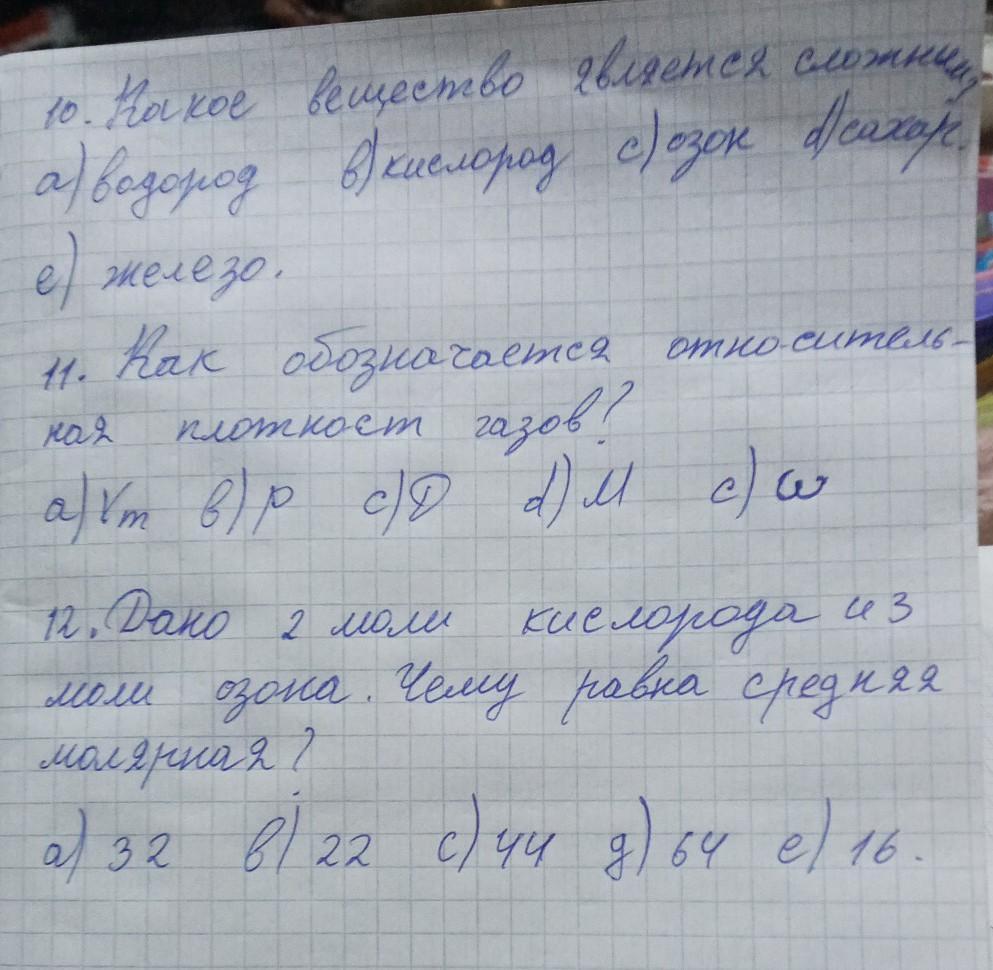 10. Какое вещество является сложным?
а) водород в) кислород с) озон d) сахар.
е) железо.
11. Как обозначается относитель-
ная плотност газов?
а) Vm в) р с) D d) М с) ω
12. Дано 2 моли кислорода и 3
моли озона. Чему равна средняя
молярная?
а) 32 в) 22 с) 44 д) 64 е) 16.